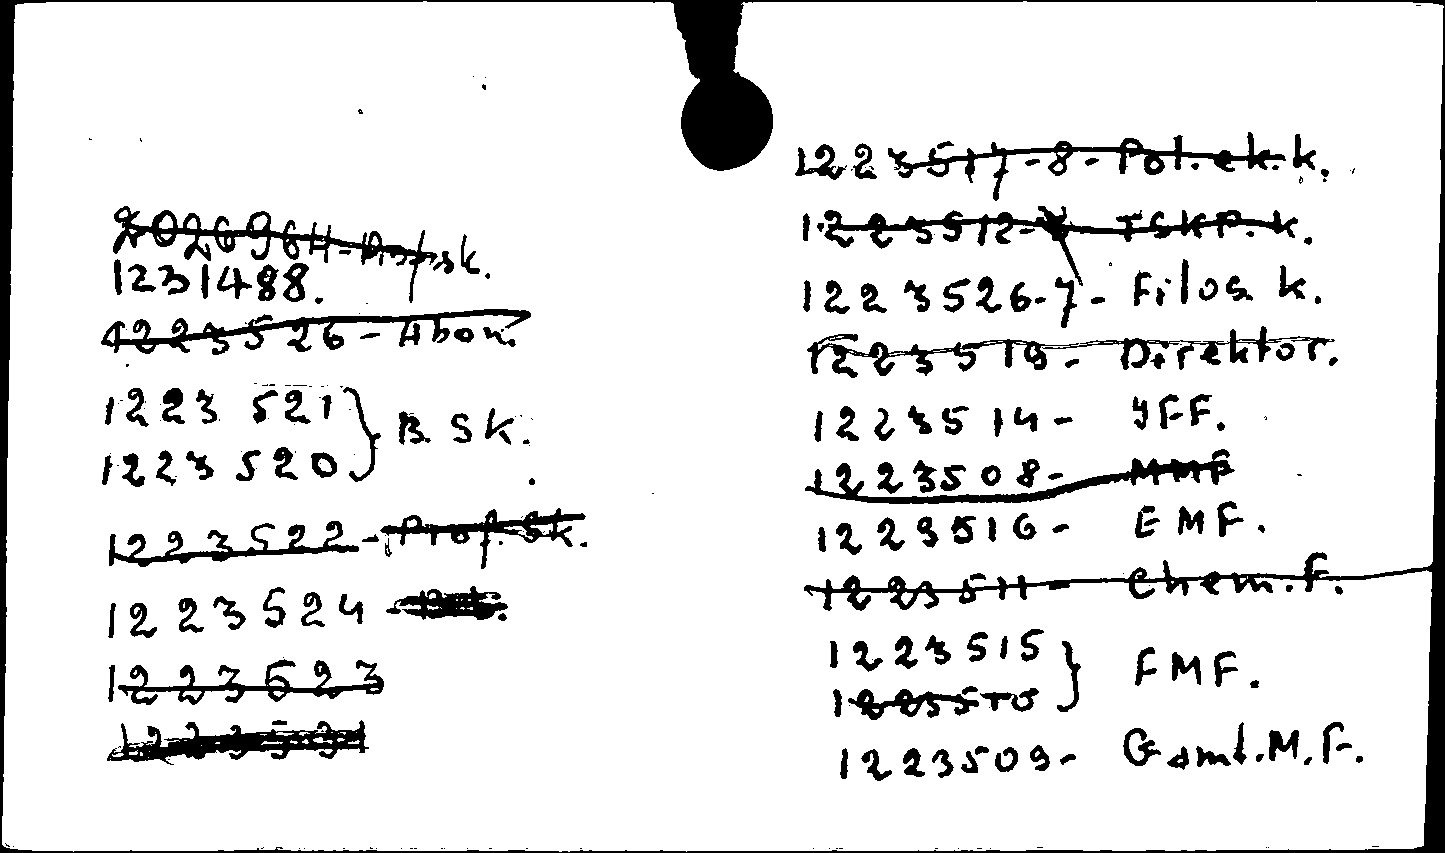 2026964-Prof.sk.
1231488.
1223526-Abon.
1223 521
1223 520 } B. Sk.
1223522-Prof. Sk.
1223524
1223523
1223531
1223517-8-Pol.ek.k.
1223512- TSKP.k.
1223526-7- Filos k.
1223519- Direktor.
1223514- JFF.
1223508- MMF
1223516- EMF.
1223511- Chem.F.
1223515
1223510 } FMF.
1223509- Gamt.M.F.